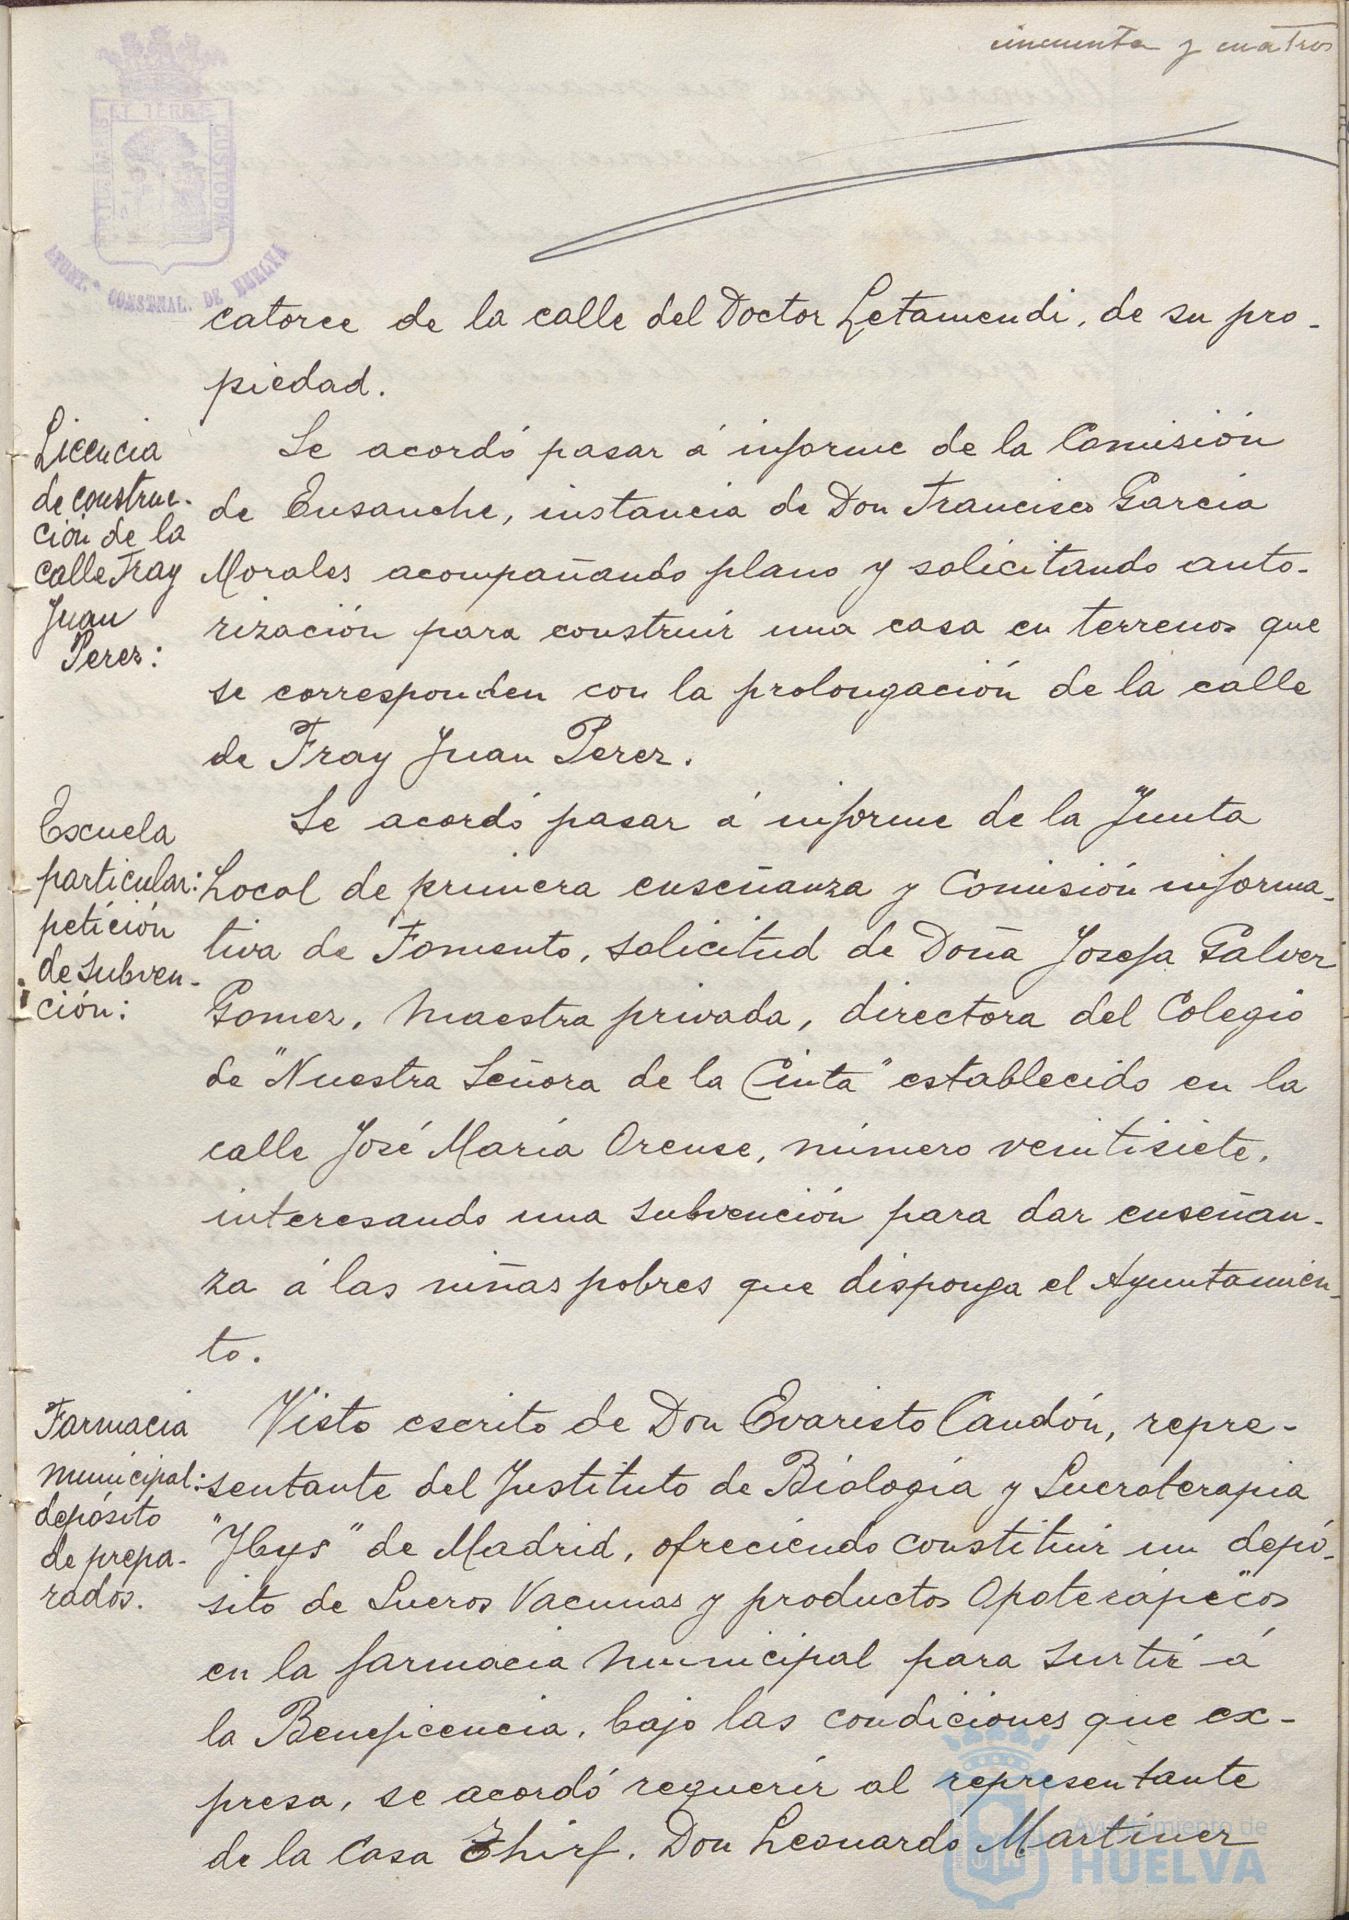 cincuenta y cuatro
PORTUS MARIS ET TERRAE CUSTODIA
AYUNT. CONSTNAL. DE HUELVA
catorce de la calle del Doctor Letamendi, de su pro-
piedad.
Licencia
de construc-
ción de la
calle Fray
Juan
Perez:
Se acordó pasar á informe de la Comisión
de Ensanche, instancia de Don Francisco Garcia
Morales acompañando plano y solicitando auto-
rización para construir una casa en terrenos que
se corresponden con la prolongación de la calle
de Fray Juan Perez.
Escuela
particular:
petición
de subven-
ción:
Se acordó pasar á informe de la Junta
Local de primera enseñanza y Comisión informa-
tiva de Fomento, solicitud de Doña Josefa Galvez
Gomez, Maestra privada, directora del Colegio
de "Nuestra Señora de la Cinta" establecido en la
calle José María Orense, número veintisiete,
interesando una subvención para dar enseñan-
za á las niñas pobres que disponga el Ayuntamien-
to.
Farmacia
municipal:
depósito
de prepa-
rados.
Visto escrito de Don Evaristo Candón, repre-
sentante del Instituto de Biología y Sueroterapia
"Ibys" de Madrid, ofreciendo constituir un depó-
sito de Sueros Vacunas y productos Opoterápicos
en la farmacia Municipal para surtir á
la Beneficencia, bajo las condiciones que ex-
presa, se acordó requerir al representante
de la Casa Thirf, Don Leonardo Martinez
Ayuntamiento de
HUELVA